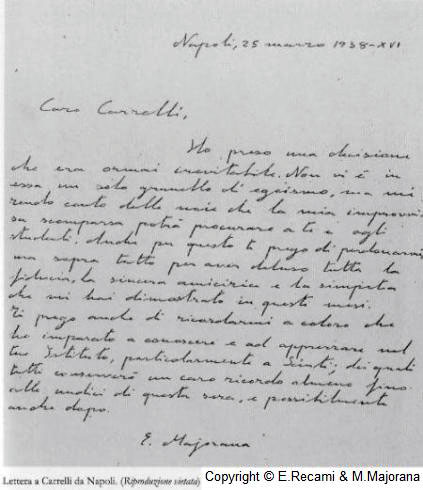 Napoli, 25 marzo 1938-XVI
Caro Carrelli,
Ho preso una decisione
che era ormai inevitabile. Non vi è in
essa un solo granello di egoismo, ma mi
rendo conto delle noie che la mia improvvi-
sa scomparsa potrà procurare a te e agli
studenti. Anche per questo ti prego di perdonarmi,
ma sopra tutto per aver deluso tutta la
fiducia, la sincera amicizia e la simpatia
che mi hai dimostrato in questi mesi.
Ti prego anche di ricordarmi a coloro che
ho imparato a conoscere e ad apprezzare nel
tuo Istituto, particolarmente a Sciuti; dei quali
tutti conserverò un caro ricordo almeno fino
alle undici di questa sera, e possibilmente
anche dopo.
E. Majorana
Lettera a Carrelli da Napoli. (Riproduzione vietata)
Copyright © E.Recami & M.Majorana